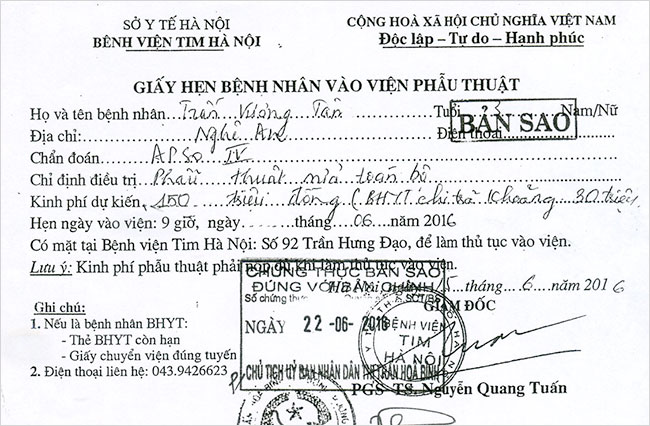 SỞ Y TẾ HÀ NỘI
BỆNH VIỆN TIM HÀ NỘI
CỘNG HOÀ XÃ HỘI CHỦ NGHĨA VIỆT NAM
Độc lập – Tự do – Hạnh phúc
GIẤY HẸN BỆNH NHÂN VÀO VIỆN PHẪU THUẬT
Họ và tên bệnh nhân Trần Vương Tấn Tuổi 3 Nam/Nữ
BẢN SAO
Địa chỉ: Nghệ An Điện thoại
Chẩn đoán APSO IV
Chỉ định điều trị Phẫu thuật sửa toàn bộ
Kinh phí dự kiến 150 triệu đồng (BHYT chi trả khoảng 30 triệu
Hẹn ngày vào viện: 9 giờ, ngày......tháng...06...2016
Có mặt tại Bệnh viện Tim Hà Nội: Số 92 Trần Hưng Đạo, để làm thủ tục vào viện.
Lưu ý: Kinh phí phẫu thuật phải nộp đủ khi làm thủ tục vào viện.
CHỨNG THỰC BẢN SAO
ĐÚNG VỚI BẢN CHÍNH
15 tháng 6 năm 2016
Số chứng thực SCT/BS
GIÁM ĐỐC
Ghi chú:
NGÀY 22-06-2016
BỆNH VIỆN
TIM
HÀ NỘI
1. Nếu là bệnh nhân BHYT:
- Thẻ BHYT còn hạn
- Giấy chuyển viện đúng tuyến
CHỦ TỊCH UỶ BAN NHÂN DÂN THỊ TRẤN HOÀ BÌNH
2. Điện thoại liên hệ: 043.9426623
PGS- TS. Nguyễn Quang Tuấn